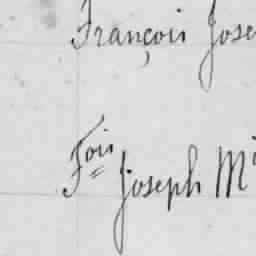 François Jose
Fois Joseph Mi